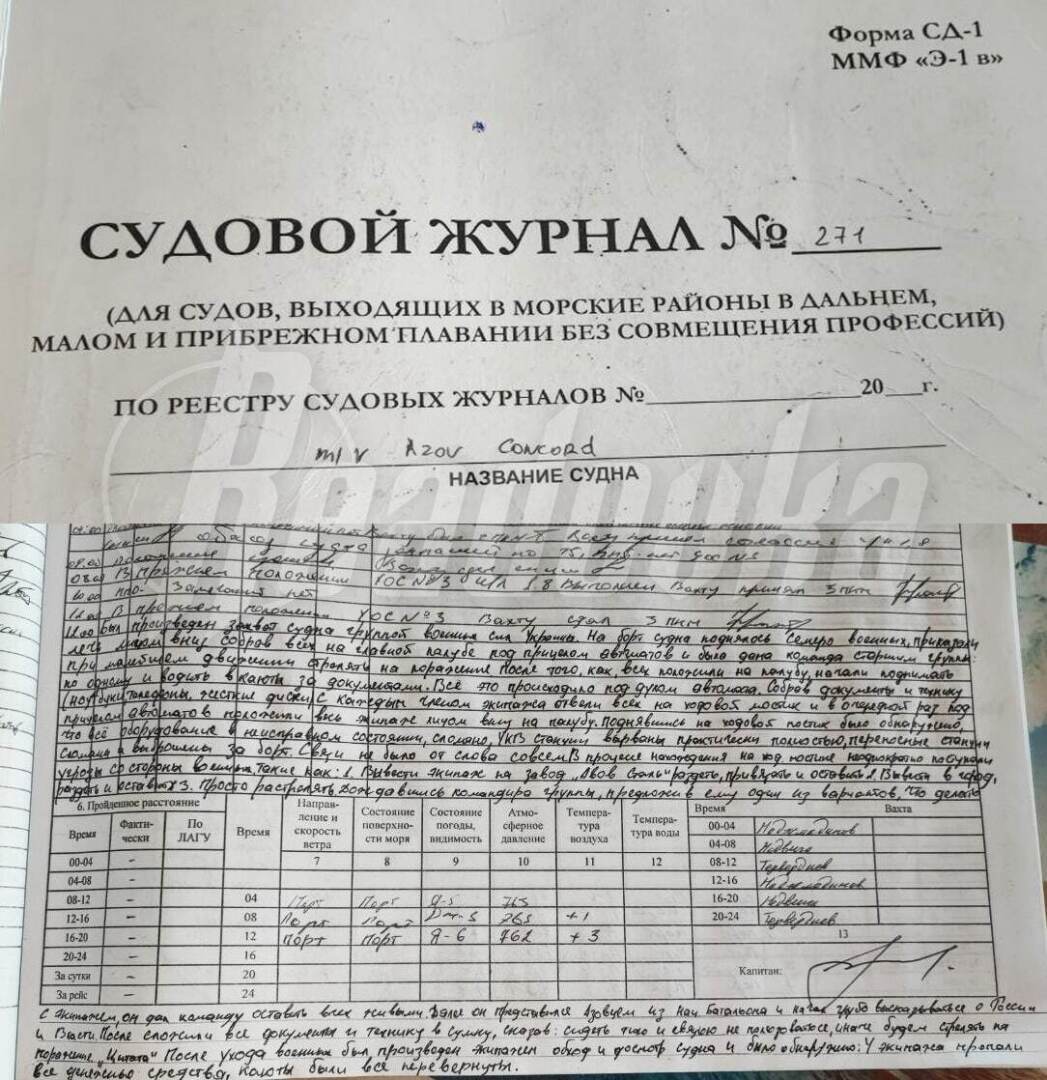 Форма СД-1
ММФ «Э-1 в»
СУДОВОЙ ЖУРНАЛ № 271
(ДЛЯ СУДОВ, ВЫХОДЯЩИХ В МОРСКИЕ РАЙОНЫ В ДАЛЬНЕМ,
МАЛОМ И ПРИБРЕЖНОМ ПЛАВАНИИ БЕЗ СОВМЕЩЕНИЯ ПРОФЕССИЙ)
ПО РЕЕСТРУ СУДОВЫХ ЖУРНАЛОВ № 20 г.
m/v Azov Concord
НАЗВАНИЕ СУДНА
судна
08.00 В прежнем положении УОС №3 Выполнен Вахту принял 3 пкм
10.00 Замечаний нет
12.00 В прежнем положении УОС №3 Вахту сдал 3 пкм
12.00 был произведен захват судна группой военных сил Украины. На борт судна поднялось Семеро военных, приказали
лечь лицом вниз собрав всех на главной палубе под прицелом автоматов и была дана команда старшим группы:
при малейшем движении стрелять на поражение После того, как всех положили на палубу, начали поднимать
по одному и водить в каюты за документами. Всё это происходило под дулом автомата. Собрав документы и технику
(ноутбуки, телефоны, жесткие диски) с каждым членом экипажа отвели всех на ходовой мостик и в очередной раз под
прицелом автоматов положили весь экипаж лицом вниз на палубу. Поднявшись на ходовой мостик было обнаружено,
что всё оборудование в неисправном состоянии, сломано, УКВ станции вырваны практически полностью, переносные станции
сломаны и выброшены за борт. Связи не было от слова совсем. В процессе нахождения на ход мостике неоднократно поступали
угрозы со стороны военных. Такие как: 1. Вывести экипаж на завод „Азов Сталь" раздеть, привязать и оставить 2. Вывести в город,
раздеть и оставить 3. Просто расстрелять. Дождавшись командира группы, предложив ему один из вариантов, Что делать
6. Пройденное расстояние
Время Факти-чески По ЛАГУ Время Направ-ление и скорость ветра Состояние поверхно-сти моря Состояние погоды, видимость Атмо-сферное давление Темпера-тура воздуха Темпера-тура воды Время Вахта
7 8 9 10 11 12
00-04 – 00-04
04-08 – 04-08
08-12 – 04 Порт Порт 765 08-12
12-16 – 08 Порт Порт 765 +1 12-16
16-20 – 12 Порт Порт Я-6 762 +3 16-20
20-24 – 16 20-24
За сутки – 20 13
За рейс – 24 Капитан:
с экипажем, он дал команду оставить всех живыми. Далее он представился Азовцем из нац Батальона и начал грубо высказываться о России
и Власти. После сложили все документы и технику в сумку, сказав: сидеть тихо и связью не пользоваться, иначе будем стрелять на
поражение „Цитата" После ухода военных был произведен экипажем обход и досмотр судна и было обнаружено: У экипажа пропали
все денежные средства, каюты были все перевернуты.